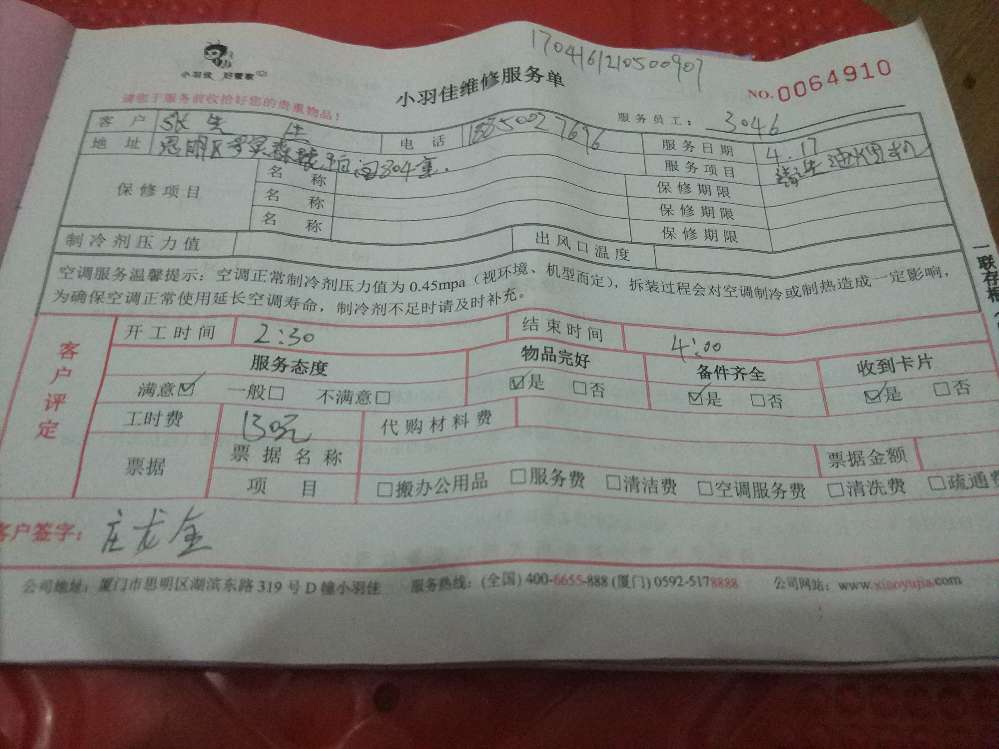 1704161210500907
小羽佳 好管家
小羽佳维修服务单
NO.0064910
请您于服务前收拾好您的贵重物品!
服务员工: 3046
客户 张先生 电话 服务日期 4.17
地址 思明区 804室. 服务项目 清洗油烟机
保修项目 名称 保修期限
名称 保修期限
名称 保修期限
制冷剂压力值 出风口温度
空调服务温馨提示:空调正常制冷剂压力值为0.45mpa(视环境、机型而定),拆装过程会对空调制冷或制热造成一定影响,
为确保空调正常使用延长空调寿命,制冷剂不足时请及时补充。
一联存根
客户评定
开工时间 2:30 结束时间 4:00
服务态度 物品完好 备件齐全 收到卡片
满意☑ 一般□ 不满意□ ☑是 □否 ☑是 □否 ☑是 □否
工时费 130元 代购材料费
票据 票据名称 票据金额
项目 □搬办公用品 □服务费 □清洁费 □空调服务费 □清洗费 □疏通费
客户签字: 庄龙金
公司地址:厦门市思明区湖滨东路319号D幢小羽佳 服务热线:(全国)400-6655-888(厦门)0592-5178888 公司网站:www.xiaoyujia.com